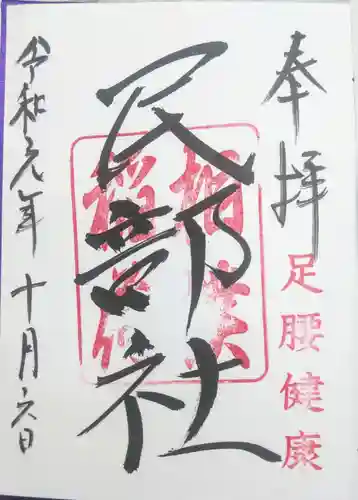 奉拝
足腰健康
民部社
令和元年 十月六日